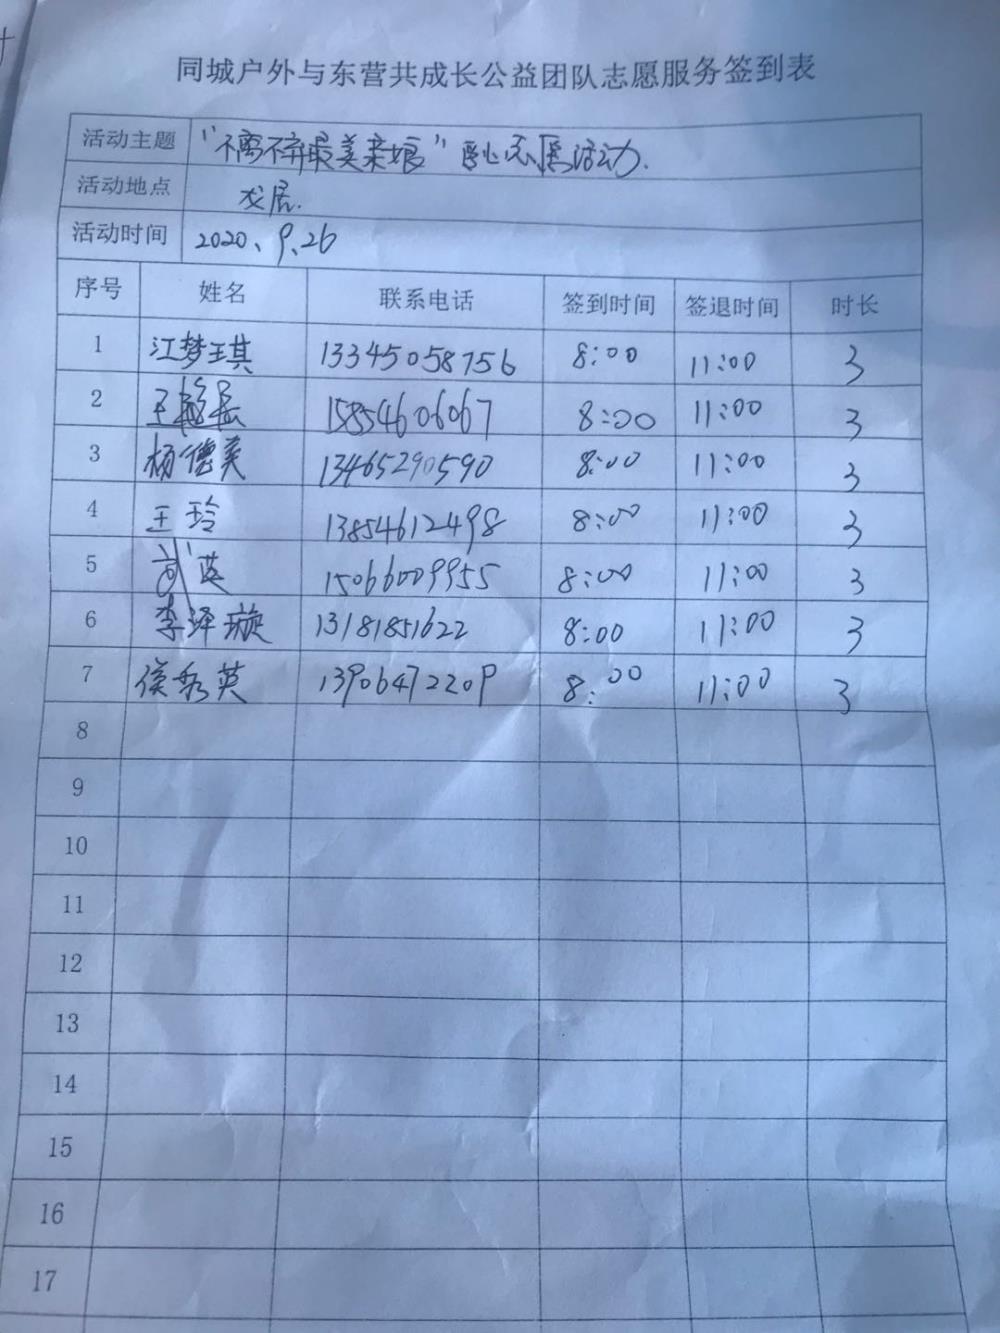 同城户外与东营共成长公益团队志愿服务签到表
活动主题 "不离不弃最美亲娘" 志愿活动.
活动地点 龙居.
活动时间 2020、9、26
序号 姓名 联系电话 签到时间 签退时间 时长
1 江梦琪 13345058756 8:00 11:00 3
2 王 15854606067 8:00 11:00 3
3 杨德美 13465290590 8:00 11:00 3
4 王玲 13854612498 8:00 11:00 3
5 刘英 15066009955 8:00 11:00 3
6 李泽璇 13181851622 8:00 11:00 3
7 侯秀英 13906472209 8:00 11:00 3
8
9
10
11
12
13
14
15
16
17